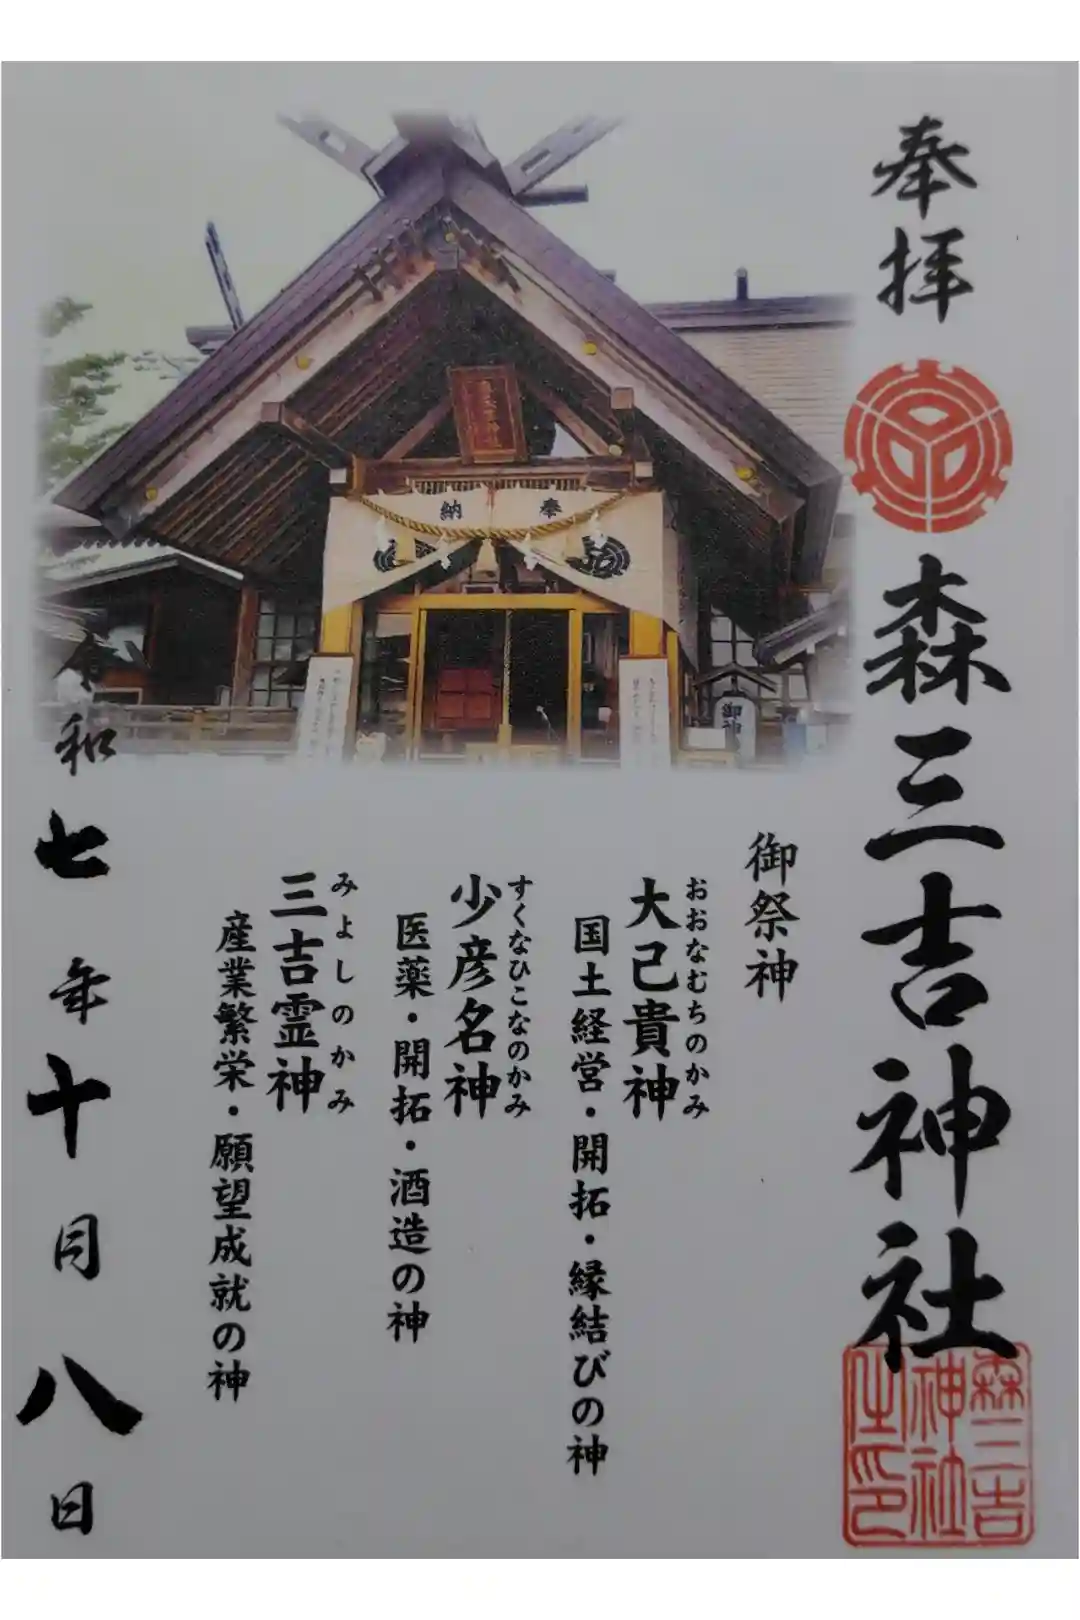 奉拝
森三吉神社
森三吉
神社
之印
御祭神
大己貴神
おおなむちのかみ
国土経営・開拓・縁結びの神
少彦名神
すくなひこなのかみ
医薬・開拓・酒造の神
三吉霊神
みよしのかみ
産業繁栄・願望成就の神
令和七年十月八日
奉
納
御神